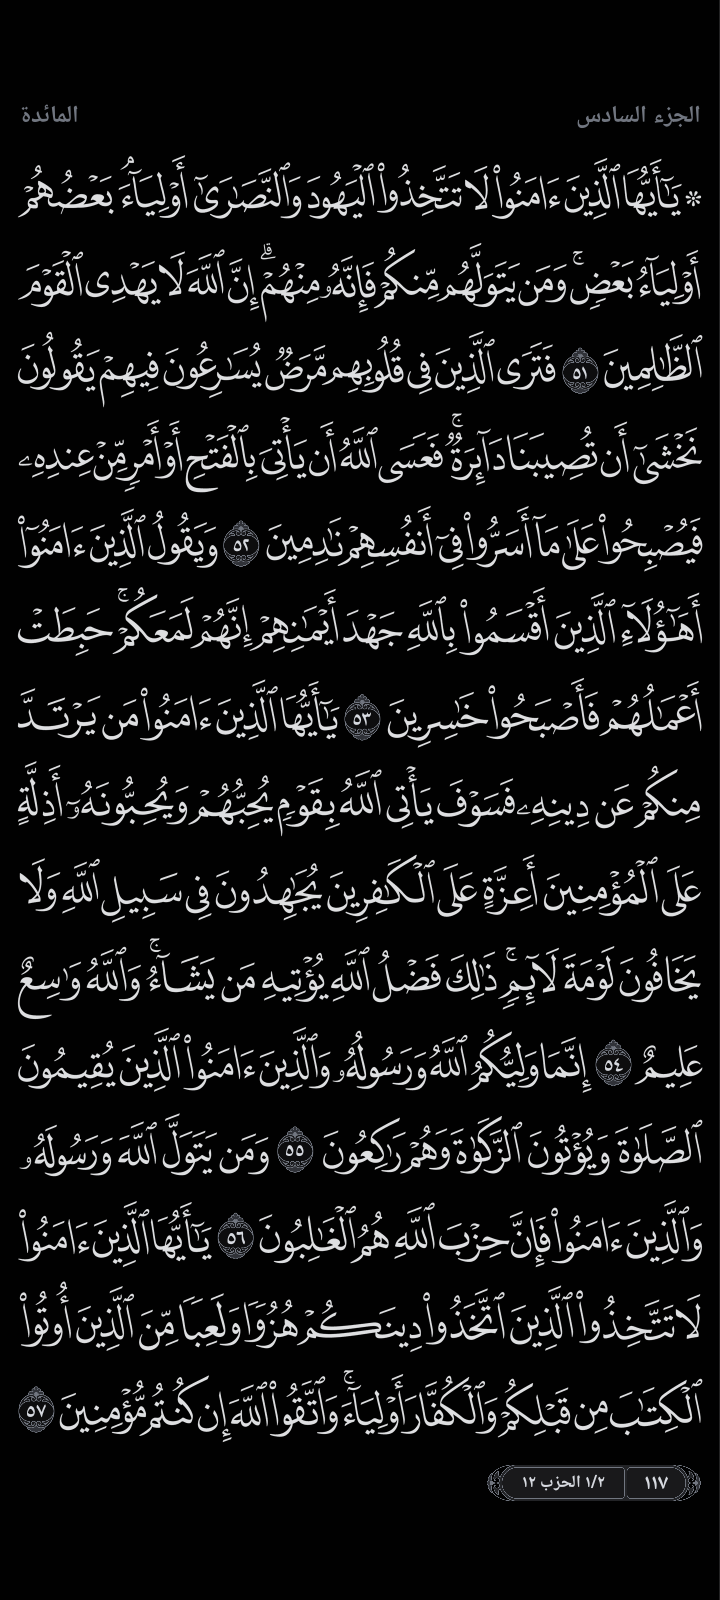 الجزء السادس
المائدة
۞ يَـٰٓأَيُّهَا ٱلَّذِينَ ءَامَنُوا۟ لَا تَتَّخِذُوا۟ ٱلْيَهُودَ وَٱلنَّصَـٰرَىٰٓ أَوْلِيَآءَ ۘ بَعْضُهُمْ
أَوْلِيَآءُ بَعْضٍ ۚ وَمَن يَتَوَلَّهُم مِّنكُمْ فَإِنَّهُۥ مِنْهُمْ ۗ إِنَّ ٱللَّهَ لَا يَهْدِى ٱلْقَوْمَ
ٱلظَّـٰلِمِينَ ٥١ فَتَرَى ٱلَّذِينَ فِى قُلُوبِهِم مَّرَضٌ يُسَـٰرِعُونَ فِيهِمْ يَقُولُونَ
نَخْشَىٰٓ أَن تُصِيبَنَا دَآئِرَةٌ ۚ فَعَسَى ٱللَّهُ أَن يَأْتِىَ بِٱلْفَتْحِ أَوْ أَمْرٍ مِّنْ عِندِهِۦ
فَيُصْبِحُوا۟ عَلَىٰ مَآ أَسَرُّوا۟ فِىٓ أَنفُسِهِمْ نَـٰدِمِينَ ٥٢ وَيَقُولُ ٱلَّذِينَ ءَامَنُوٓا۟
أَهَـٰٓؤُلَآءِ ٱلَّذِينَ أَقْسَمُوا۟ بِٱللَّهِ جَهْدَ أَيْمَـٰنِهِمْ إِنَّهُمْ لَمَعَكُمْ ۚ حَبِطَتْ
أَعْمَـٰلُهُمْ فَأَصْبَحُوا۟ خَـٰسِرِينَ ٥٣ يَـٰٓأَيُّهَا ٱلَّذِينَ ءَامَنُوا۟ مَن يَرْتَدَّ
مِنكُمْ عَن دِينِهِۦ فَسَوْفَ يَأْتِى ٱللَّهُ بِقَوْمٍ يُحِبُّهُمْ وَيُحِبُّونَهُۥٓ أَذِلَّةٍ
عَلَى ٱلْمُؤْمِنِينَ أَعِزَّةٍ عَلَى ٱلْكَـٰفِرِينَ يُجَـٰهِدُونَ فِى سَبِيلِ ٱللَّهِ وَلَا
يَخَافُونَ لَوْمَةَ لَآئِمٍ ۚ ذَٰلِكَ فَضْلُ ٱللَّهِ يُؤْتِيهِ مَن يَشَآءُ ۚ وَٱللَّهُ وَٰسِعٌ
عَلِيمٌ ٥٤ إِنَّمَا وَلِيُّكُمُ ٱللَّهُ وَرَسُولُهُۥ وَٱلَّذِينَ ءَامَنُوا۟ ٱلَّذِينَ يُقِيمُونَ
ٱلصَّلَوٰةَ وَيُؤْتُونَ ٱلزَّكَوٰةَ وَهُمْ رَٰكِعُونَ ٥٥ وَمَن يَتَوَلَّ ٱللَّهَ وَرَسُولَهُۥ
وَٱلَّذِينَ ءَامَنُوا۟ فَإِنَّ حِزْبَ ٱللَّهِ هُمُ ٱلْغَـٰلِبُونَ ٥٦ يَـٰٓأَيُّهَا ٱلَّذِينَ ءَامَنُوا۟
لَا تَتَّخِذُوا۟ ٱلَّذِينَ ٱتَّخَذُوا۟ دِينَكُمْ هُزُوًا وَلَعِبًا مِّنَ ٱلَّذِينَ أُوتُوا۟
ٱلْكِتَـٰبَ مِن قَبْلِكُمْ وَٱلْكُفَّارَ أَوْلِيَآءَ ۚ وَٱتَّقُوا۟ ٱللَّهَ إِن كُنتُم مُّؤْمِنِينَ ٥٧
١١٧
١/٢ الحزب ١٢